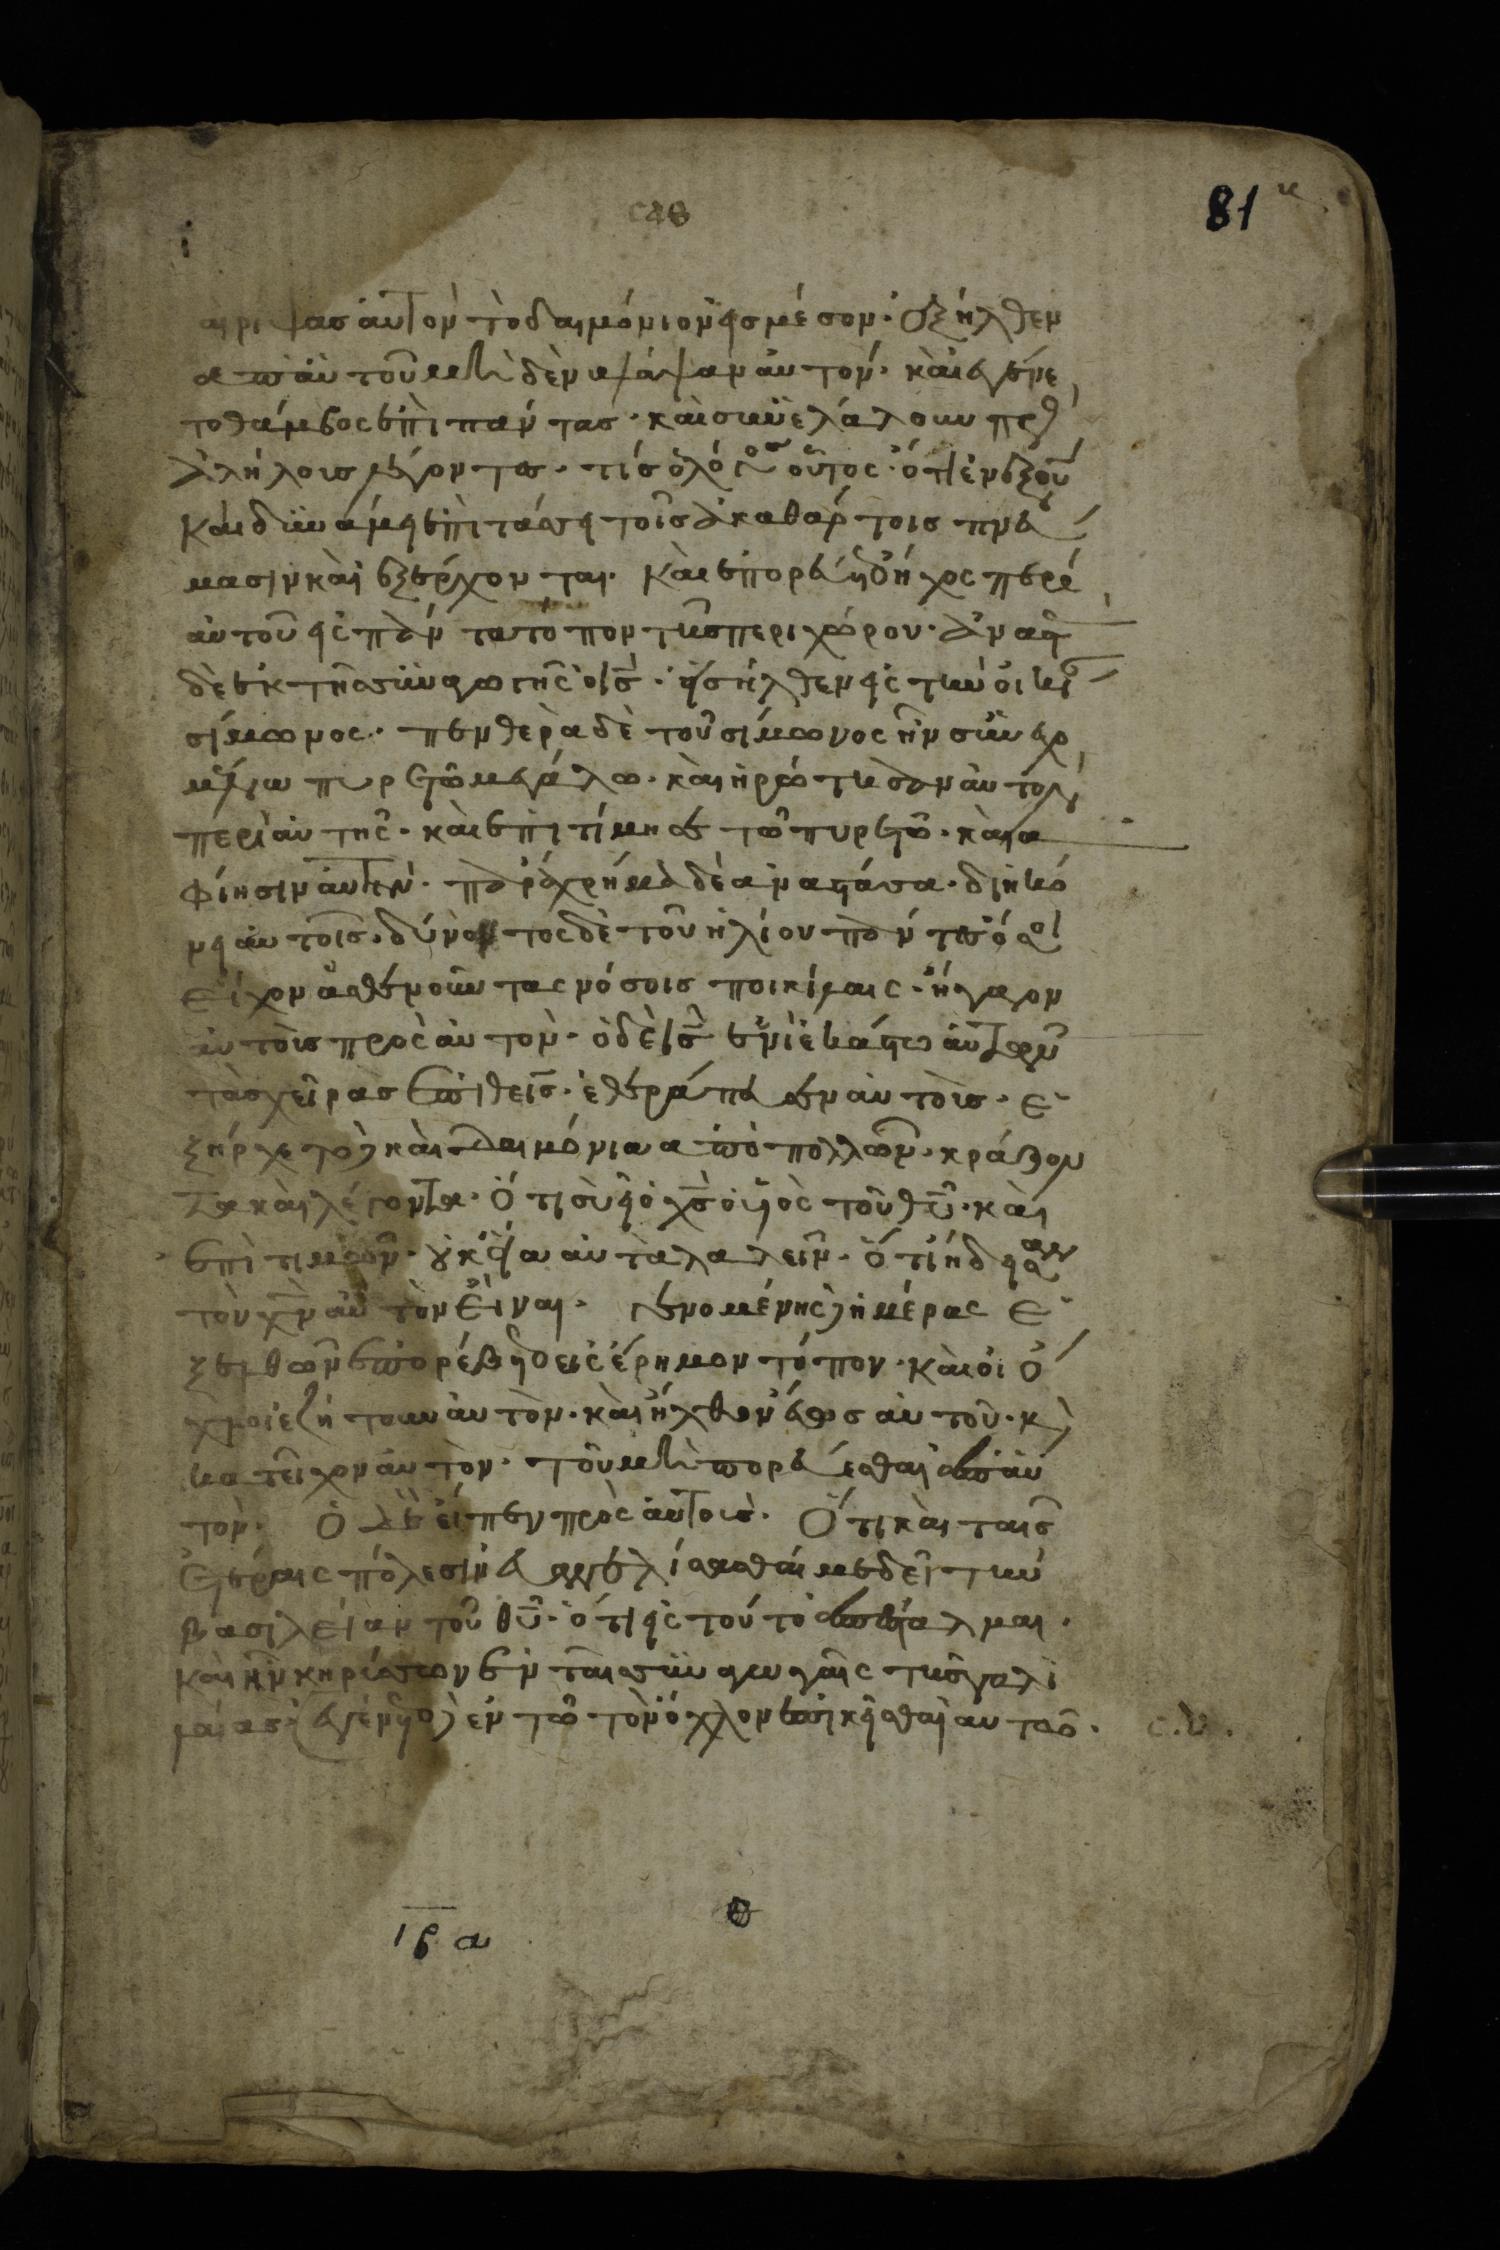 81
καὶ ρίψας αὐτὸν τὸ δαιμόνιον εἰς μέσον· ἐξῆλθεν
ἀπ' αὐτοῦ μηδὲν βλάψαν αὐτόν· καὶ ἐγένε
το θάμβος ἐπὶ πάντας· καὶ συνελάλουν πρὸς
ἀλλήλοις λέγοντες· τίς ὁ λόγος οὗτος· ὅτι ἐν ἐξουσίᾳ
καὶ δυνάμει ἐπιτάσσει τοῖς ἀκαθάρτοις πνεύ
μασιν καὶ ἐξέρχονται· καὶ ἐπορεύετο ἦχος περὶ
αὐτοῦ εἰς πάντα τόπον τῆς περιχώρου· ἀναστὰς
δὲ ἐκ τῆς συναγωγῆς ὁ ις· εἰσῆλθεν εἰς τὴν οἰκίαν
σίμωνος· πενθερὰ δὲ τοῦ σίμωνος ἦν συνεχο
μένη πυρετῷ μεγάλω· καὶ ἠρώτησαν αὐτὸν
περὶ αὐτῆς· καὶ ἐπετίμησε τῷ πυρετῷ· καὶ ἀ
φίησιν αὐτήν· παραχρῆμα δὲ ἀναστάσα· διηκό
νει αὐτοῖς· δύνοντος δὲ τοῦ ἡλίου πάντες ὅσοι
εἶχον ἀσθενοῦντας νόσοις ποικίλαις· ἤγαγον
αὐτοὺς πρὸς αὐτόν· ὁ δὲ ις ἑνὶ ἑκάστω αὐτῶν
τὰς χεῖρας ἐπιθεὶς· ἐθεράπευσεν αὐτοὺς· ἐ
ξήρχετο δὲ καὶ δαιμόνια ἀπὸ πολλῶν· κράζον
τα καὶ λέγοντα· ὅτι σὺ εἶ ὁ χς ὁ υἱὸς τοῦ θυ· καὶ
ἐπιτιμῶν· οὐκ εἴα αὐτὰ λαλεῖν· ὅτι ἤδεισαν
τὸν χν αὐτὸν εἶναι· γενομένης δὲ ἡμέρας ἐ
ξελθὼν ἐπορεύθη εἰς ἔρημον τόπον· καὶ οἱ ὄ
χλοι ἐζήτουν αὐτὸν· καὶ ἦλθον ἕως αὐτοῦ· κ
κατεῖχον αὐτὸν· τοῦ μὴ πορεύεσθαι ἀπ' αὐ
τῶν· ὁ δὲ εἶπεν πρὸς αὐτοὺς· ὅτι καὶ ταῖς
ἑτέραις πόλεσιν εὐαγγελίσασθαί με δεῖ τὴν
βασιλείαν τοῦ θυ· ὅτι εἰς τοῦτο ἀπέσταλμαι·
καὶ ἦν κηρύσσων ἐν ταῖς συναγωγαῖς τῆς γαλι
λαίας· ἐγένετο δὲ ἐν τῷ τὸν ὄχλον ἐπικεῖσθαι αὐτῷ·